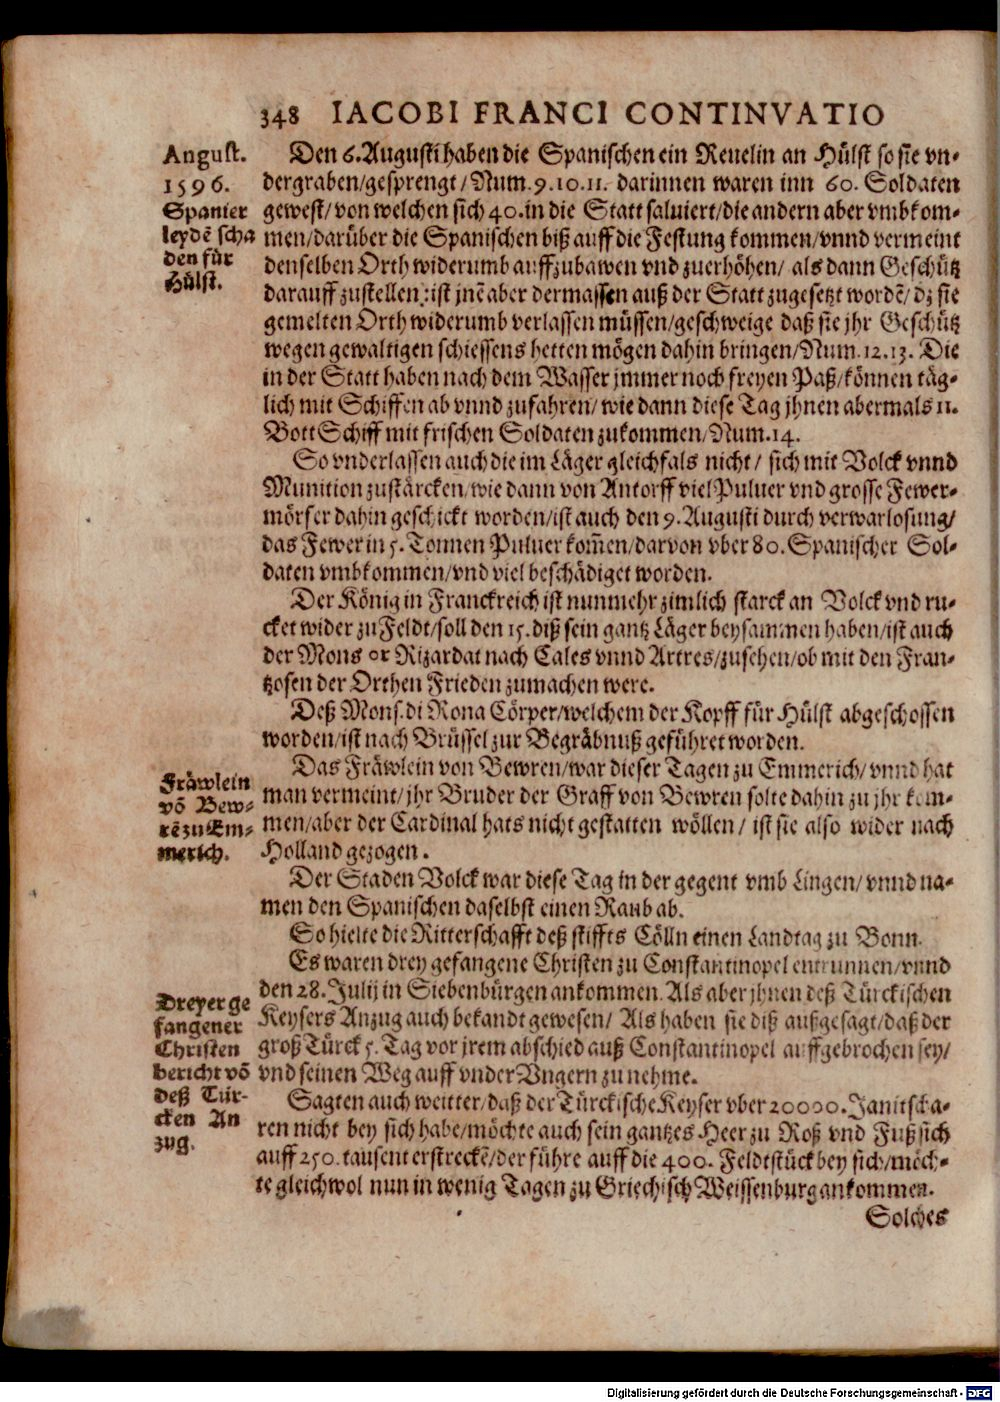 348 IACOBI FRANCI CONTINVATIO
August.
1596.
Spanier
leydẽ scha
den für
Hülst.
Den 6. Augusti haben die Spanischen ein Reuelin an Hülst so sie vn-
dergraben/gesprengt/Num. 9. 10. 11. darinnen waren inn 60. Soldaten
gewest/von welchen sich 40. in die Statt saluiert/die andern aber vmbkom-
men/darüber die Spanischen biß auff die Festung kommen/vnnd vermeint
denselben Orth widerumb auffzubawen vnd zuerhöhen/ als dann Geschütz
darauff zustellen: ist jnẽ aber dermassen auß der Statt zugesetzt wordẽ/ dz sie
gemelten Orth widerumb verlassen müssen/geschweige daß sie jhr Geschütz
wegen gewaltigen schiessens hetten mögen dahin bringen/Num. 12. 13. Die
in der Statt haben nach dem Wasser jmmer noch freyen Paß/können täg-
lich mit Schiffen ab vnnd zufahren/ wie dann diese Tag jhnen abermals 11.
Bott Schiff mit frischen Soldaten zukommen/Num. 14.
So vnderlassen auch die im Läger gleichfals nicht/ sich mit Volck vnnd
Munition zustärcken/wie dann von Antorff viel Puluer vnd grosse Fewer-
mörser dahin geschickt worden/ist auch den 9. Augusti durch verwarlosung/
das Fewer in 5. Tonnen Puluer kom̃en/darvon vber 80. Spanischer Sol-
daten vmbkommen/vnd viel beschädiget worden.
Der König in Franckreich ist nunmehr zimlich starck an Volck vnd ru-
cket wider zu Feldt/soll den 15. diß sein gantz Läger beysammen haben/ist auch
der Mons or Rizardat nach Cales vnnd Artres/zusehen/ob mit den Fran-
tzosen der Orthen Frieden zumachen were.
Deß Mons. di Rona Cörper/welchem der Kopff für Hülst abgeschossen
worden/ist nach Brüssel zur Begräbnuß geführet worden.
Fräwlein
võ Bew-
rẽ zu Em-
merich.
Das Fräwlein von Bewren/war dieser Tagen zu Emmerich/vnnd hat
man vermeint/jhr Bruder der Graff von Bewren solte dahin zu jhr kom-
men/aber der Cardinal hats nicht gestatten wöllen/ ist sie also wider nach
Holland gezogen.
Der Staden Volck war diese Tag in der gegent vmb Lingen/vnnd na-
men den Spanischen daselbst einen Raub ab.
So hielte die Ritterschafft deß stiffts Cölln einen Landtag zu Bonn.
Dreyer ge
fangener
Christen
bericht võ
deß Tür-
cken An
zug.
Es waren drey gefangene Christen zu Constantinopel entrunnen/vnnd
den 28. Julij in Siebenbürgen ankommen. Als aber jhnen deß Türckischen
Keysers Anzug auch bekandt gewesen/ Als haben sie diß außgesagt/daß der
groß Türck 5. Tag vor jrem abschied auß Constantinopel auffgebrochen sey/
vnd seinen Weg auff vnder Vngern zu nehme.
Sagten auch weitter/daß der Türckische Keyser vber 20000. Janitscha-
ren nicht bey sich habe/möchte auch sein gantzes Heer zu Roß vnd Fuß sich
auff 250. tausent erstreckẽ/der führe auff die 400. Feldtstück bey sich/möch-
te gleichwol nun in wenig Tagen zu Griechisch Weissenburg ankommen.
Solches
Digitalisierung gefördert durch die Deutsche Forschungsgemeinschaft - DFG